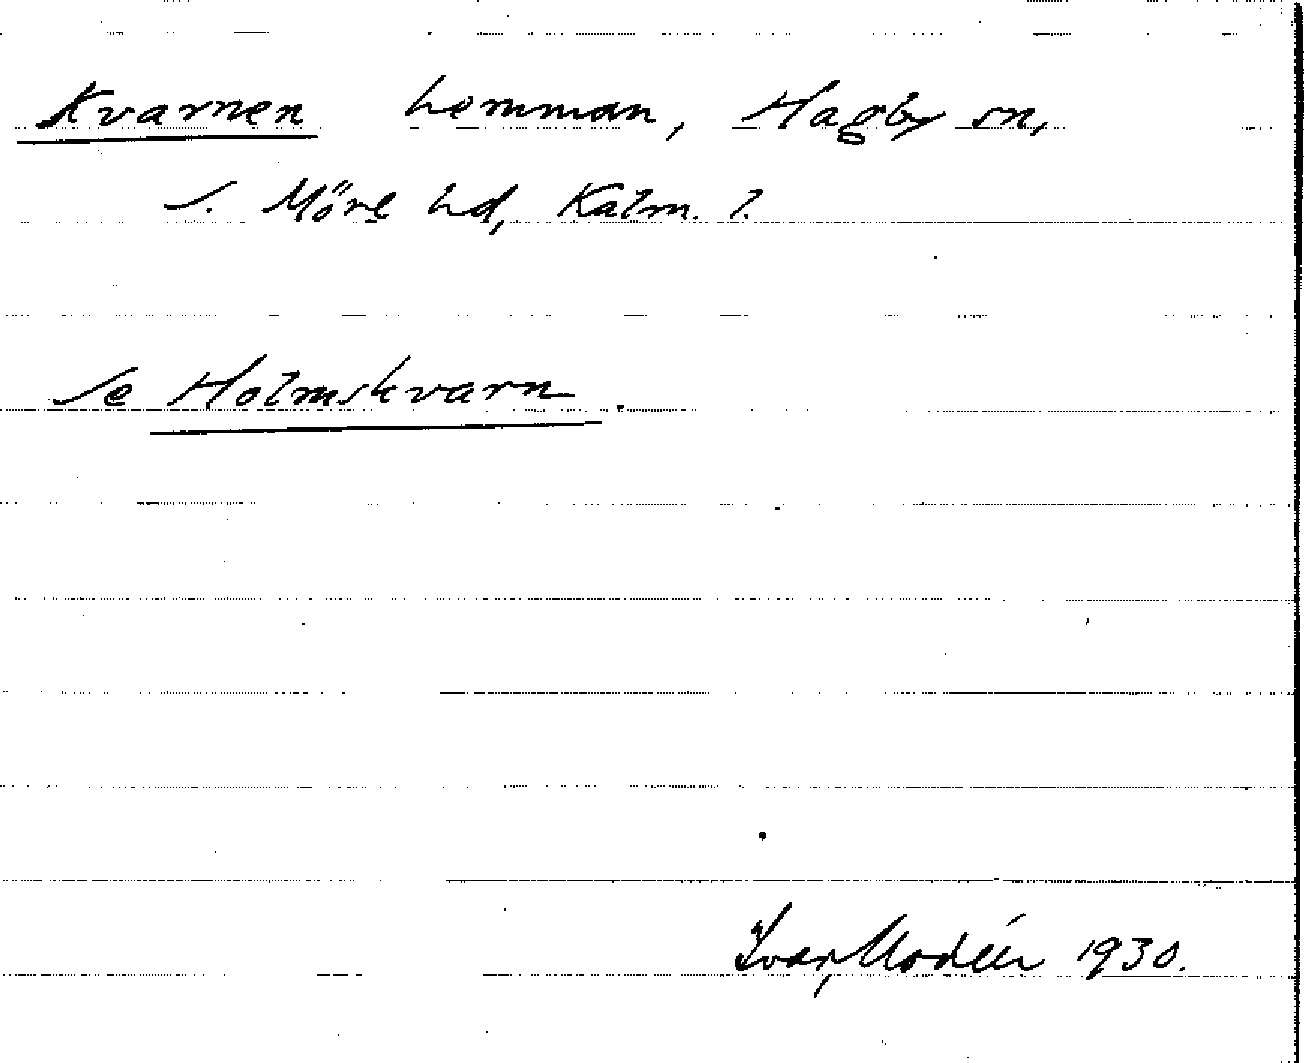 Kvarnen hemman, Hagby sn,
S. Möre hd, Kalm. l.
Se Holmskvarn.
Ivar Modéer 1930.